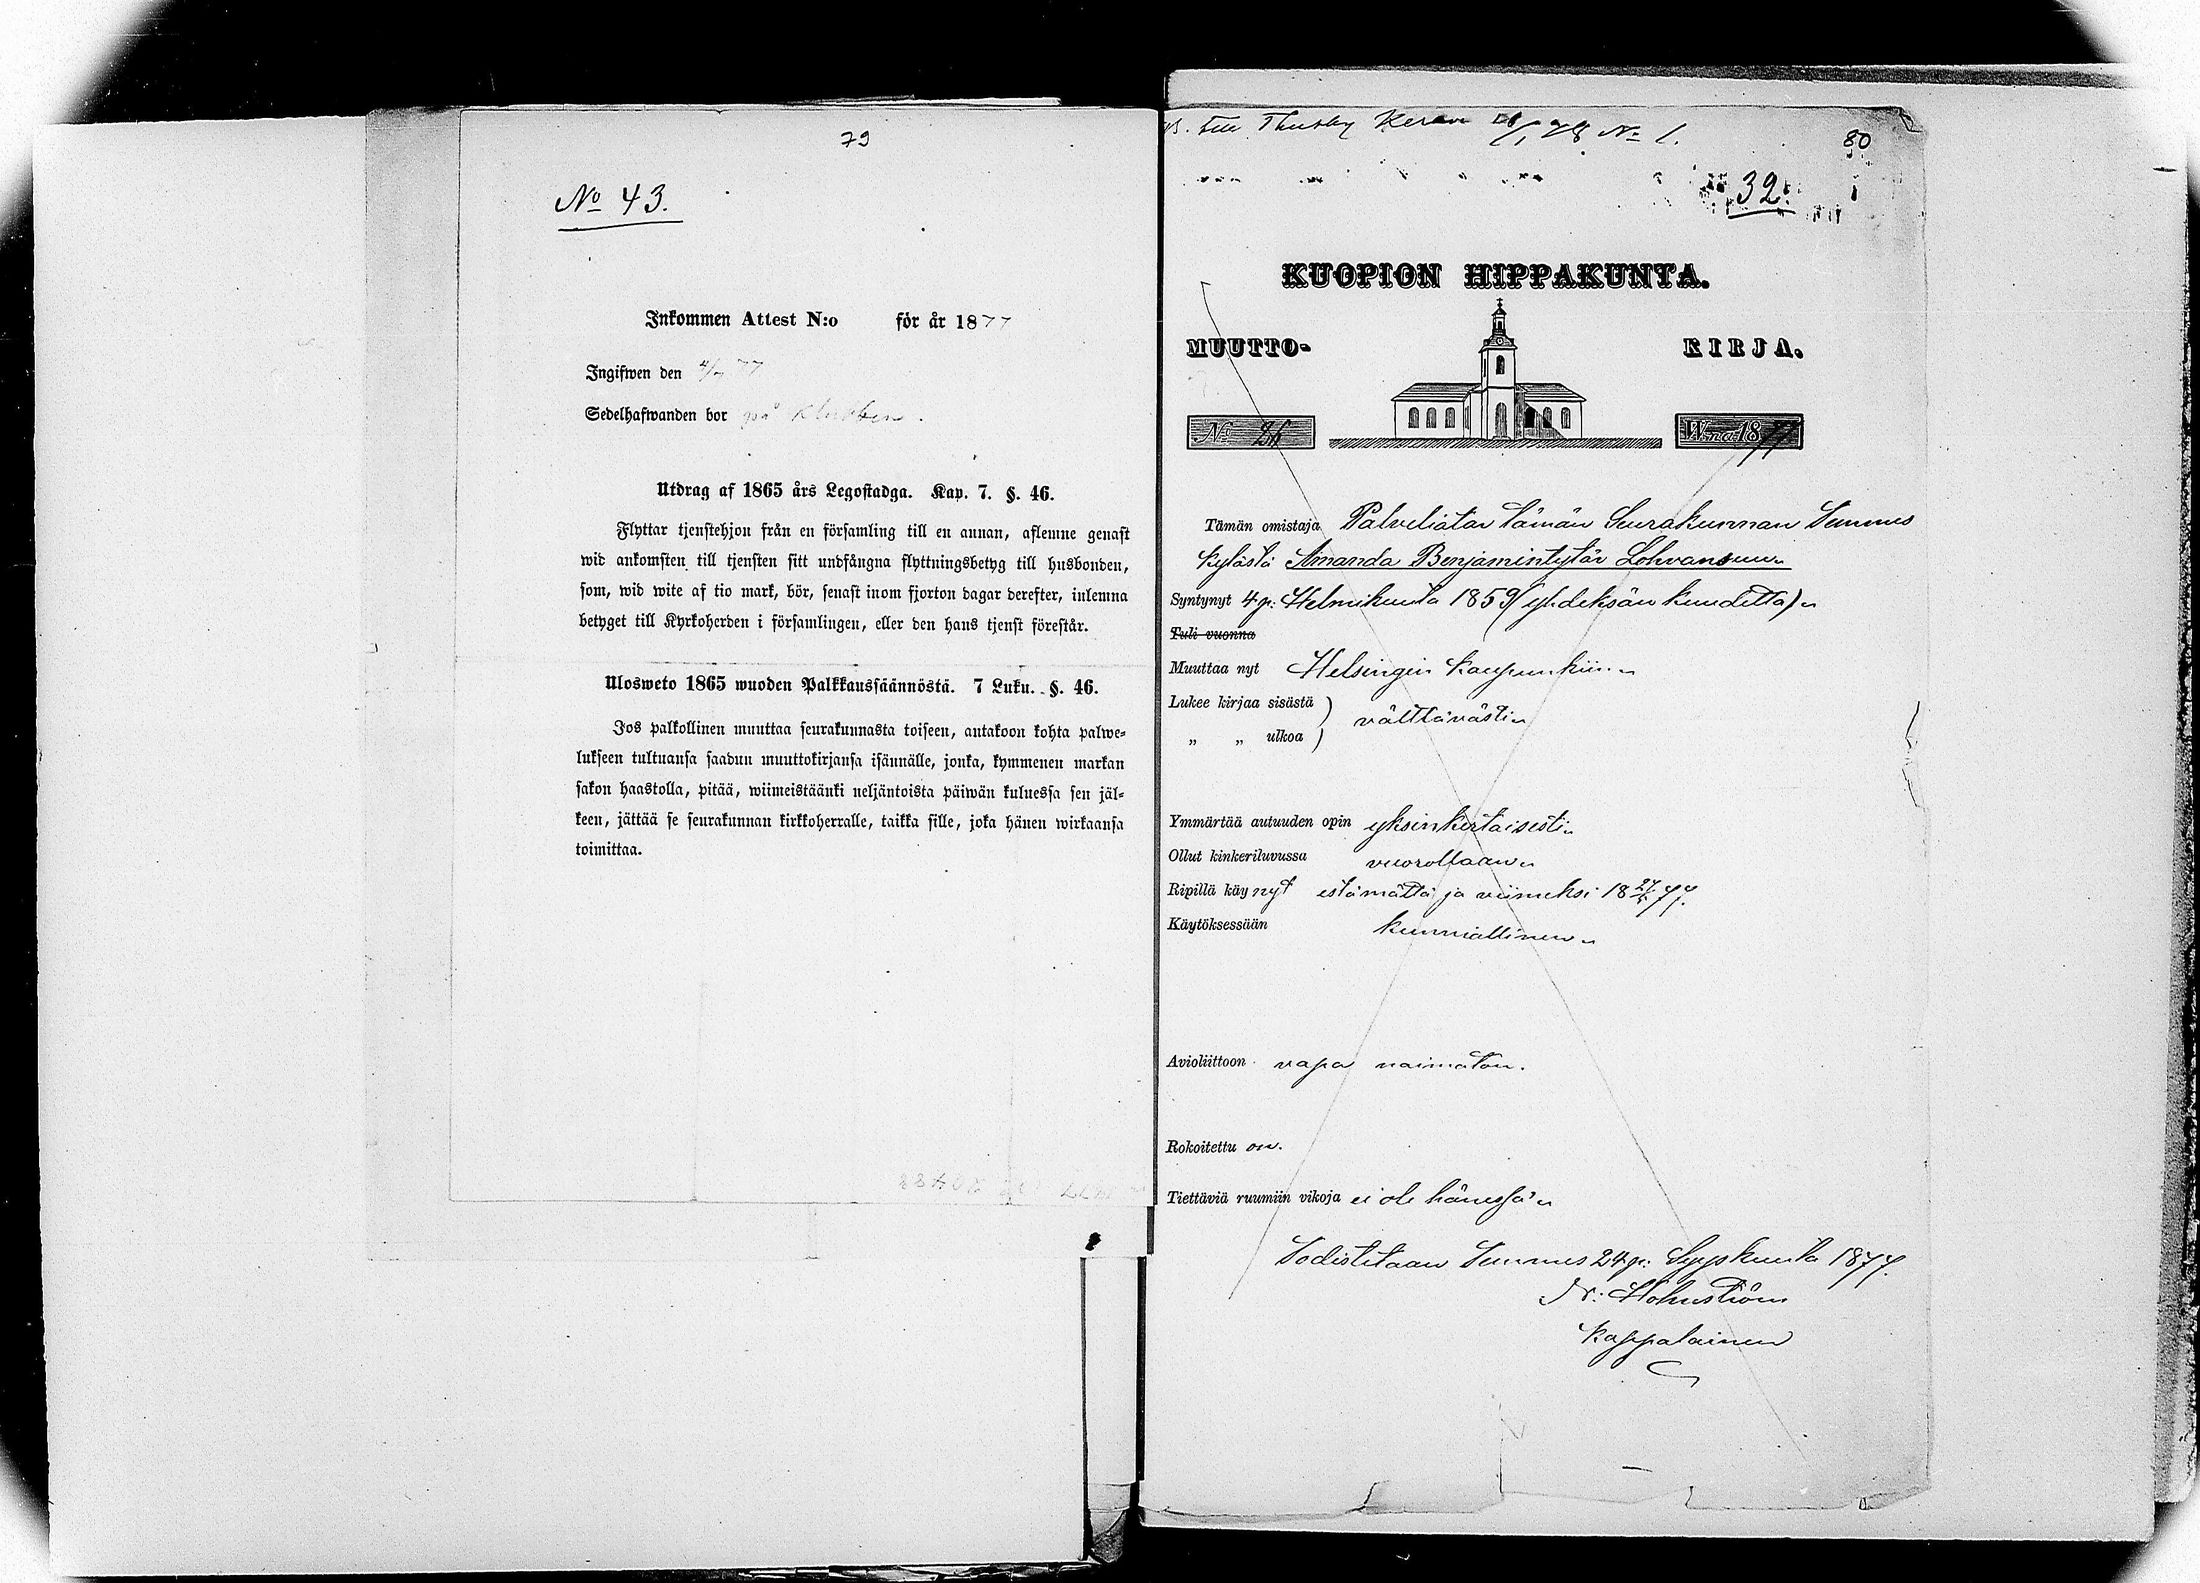 79
No 43.
Inkommen Attest N:o för år 1877
Ingifwen den
Sedelhafwanden bor på
Utdrag af 1865 års Legostadga. Kap. 7. §. 46.
Flyttar tjenstehjon från en församling till en annan, aflemne genast
wid ankomsten till tjensten sitt undfångna flyttningsbetyg till husbonden,
som, wid wite af tio mark, bör, senast inom fjorton dagar derefter, inlemna
betyget till Kyrkoherden i församlingen, eller den hans tjenst förestår.
Ulosweto 1865 wuoden Palkkaussäännöstä. 7 Luku. §. 46.
Jos palkollinen muuttaa seurakunnasta toiseen, antakoon kohta palwe-
lukseen tultuansa saadun muuttokirjansa isännälle, jonka, kymmenen markan
sakon haastolla, pitää, wiimeistäänki neljäntoista päiwän kuluessa sen jäl-
keen, jättää se seurakunnan kirkkoherralle, taikka sille, joka hänen wirkaansa
toimittaa.
till Thusby Kerava 78 No 1.
80
32.
KUOPION HIPPAKUNTA.
MUUTTO- KIRJA.
No 26 W:na 1877
Tämän omistaja Palveliatar tämän Seurakunnan Summus
kylästä Amanda Benjamintytär Lohvansuu
Syntynyt 4 p: Helmikuuta 1859 (yhdeksän kuudetta)
Tuli vuonna
Muuttaa nyt Helsingin kaupunkiin
Lukee kirjaa sisästä )
välttävästi
„ „ ulkoa )
Ymmärtää autuuden opin yksinkertaisesti
Ollut kinkeriluvussa vuorollaan
Ripillä käy nyt estämättä ja viimeksi 18 77.
Käytöksessään kunniallinen
Avioliittoon vapa naimaton.
Rokoitettu on.
Tiettäviä ruumiin vikoja ei ole hänessä
Todistetaan Summus 24 p: Syyskuuta 1877.
Holmström
Kappalainen